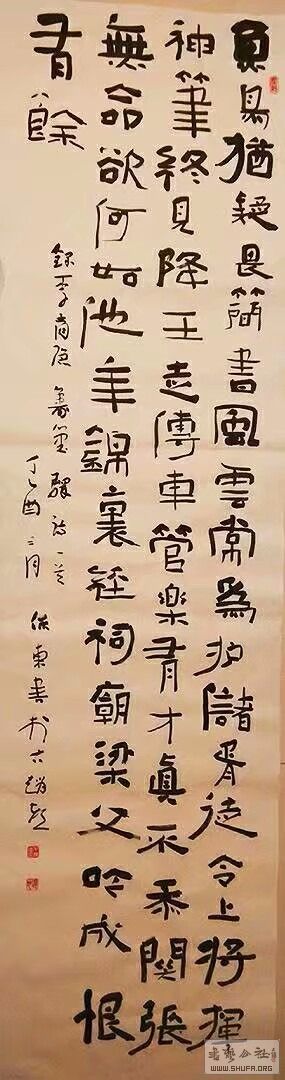 魚鳥猶疑畏簡書風雲常為护儲胥徒令上將揮
神筆終見降王走傳車管樂有才眞不忝關張
無命欲何如他年錦裏經祠廟梁父吟成恨
有餘
錄李商隱籌筆驛詩一首
丁酉三月 東書於古趙
書藝公社
WWW.SHUFA.ORG